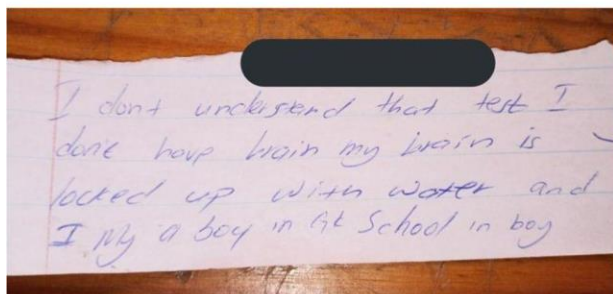 I dont understand that test I
done have brain my brain is
locked up with water and
I My a boy in School in boy